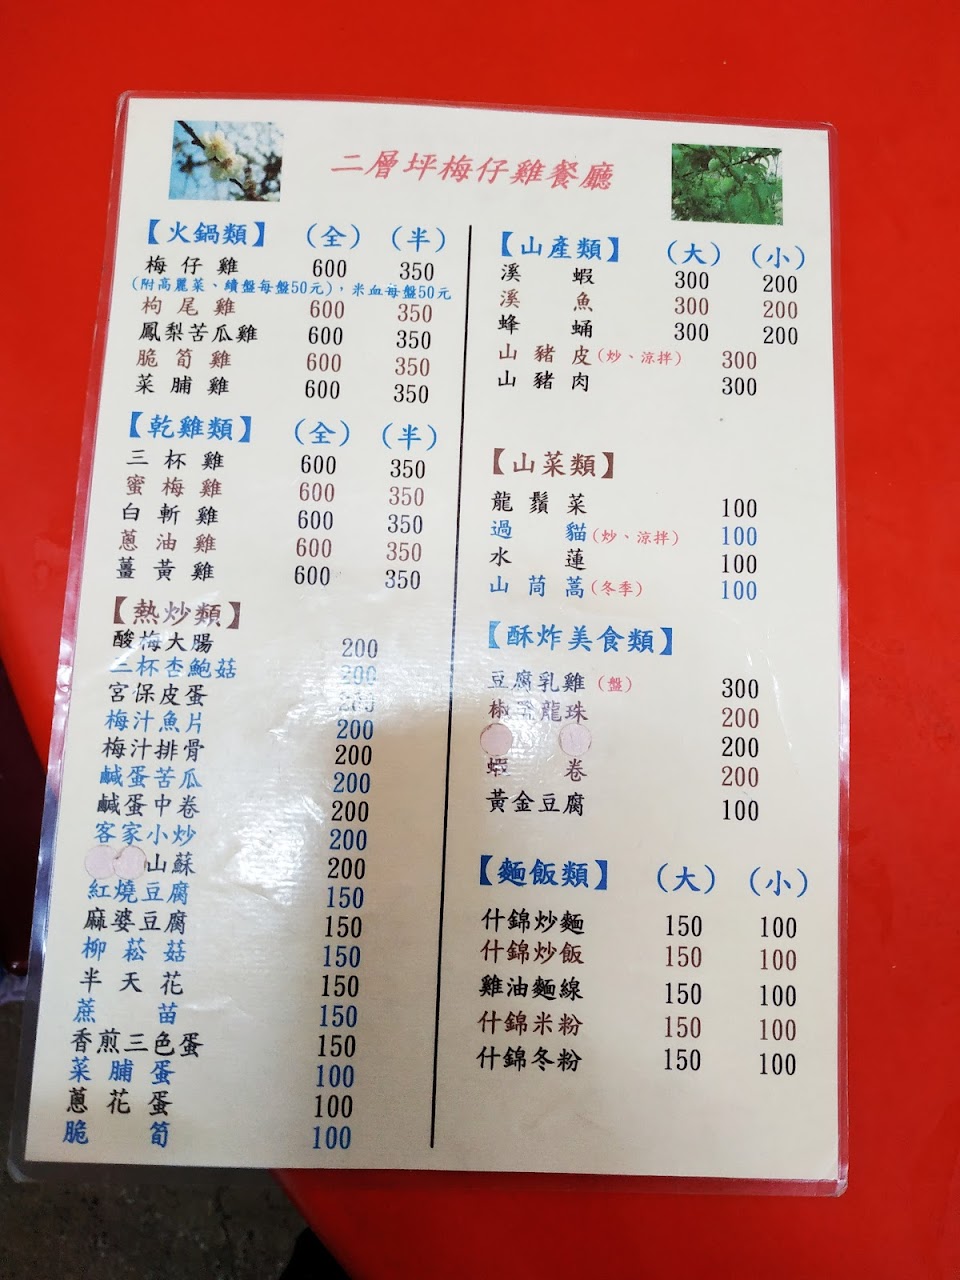 二層坪梅仔雞餐廳
【火鍋類】 (全) (半)
梅仔雞 600 350
(附高麗菜、續盤每盤50元)，米血每盤50元
枸尾雞 600 350
鳳梨苦瓜雞 600 350
脆筍雞 600 350
菜脯雞 600 350
【乾雞類】 (全) (半)
三杯雞 600 350
蜜梅雞 600 350
白斬雞 600 350
蔥油雞 600 350
薑黃雞 600 350
【熱炒類】
酸梅大腸 200
三杯杏鮑菇 200
宮保皮蛋 200
梅汁魚片 200
梅汁排骨 200
鹹蛋苦瓜 200
鹹蛋中卷 200
客家小炒 200
山蘇 200
紅燒豆腐 150
麻婆豆腐 150
柳菘菇 150
半天花 150
蔗苗 150
香煎三色蛋 150
菜脯蛋 100
蔥花蛋 100
脆筍 100
【山產類】 (大) (小)
溪蝦 300 200
溪魚 300 200
蜂蛹 300 200
山豬皮(炒、涼拌) 300
山豬肉 300
【山菜類】
龍鬚菜 100
過貓(炒、涼拌) 100
水蓮 100
山茼蒿(冬季) 100
【酥炸美食類】
豆腐乳雞(盤) 300
椒鹽龍珠 200
200
蝦卷 200
黃金豆腐 100
【麵飯類】 (大) (小)
什錦炒麵 150 100
什錦炒飯 150 100
雞油麵線 150 100
什錦米粉 150 100
什錦冬粉 150 100